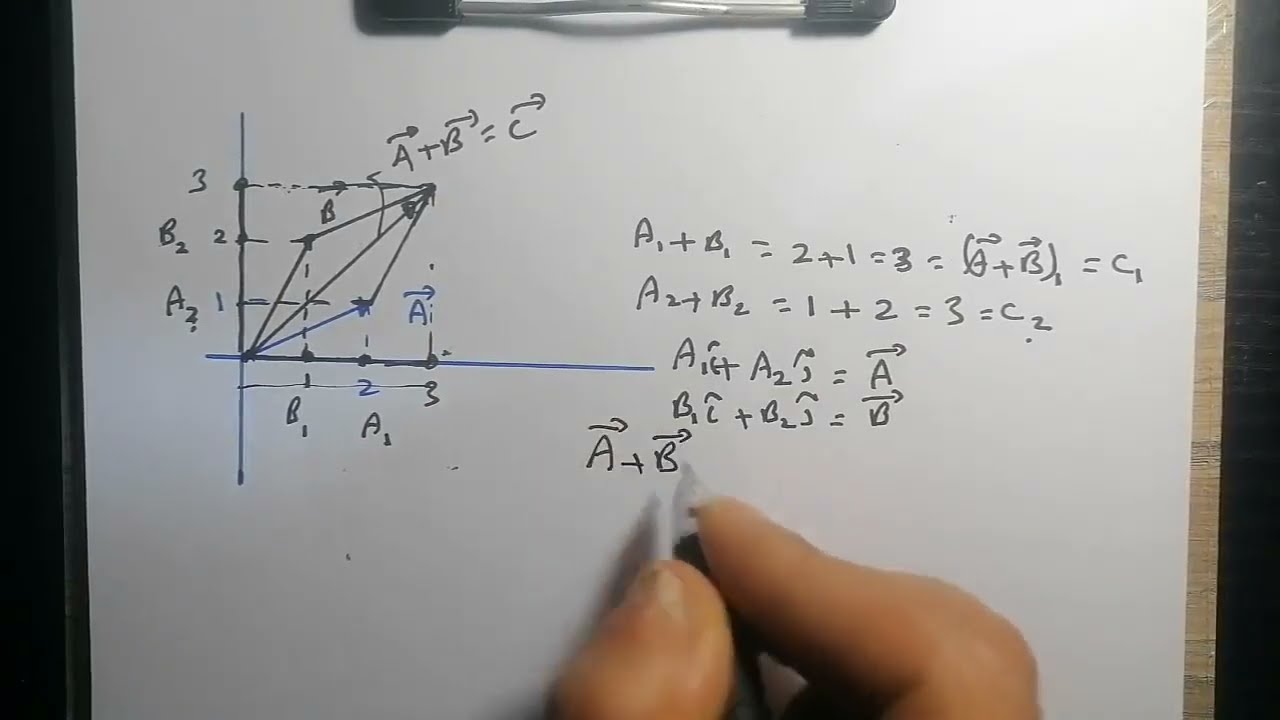 A⃗ + B⃗ = C⃗
3
B
B₂ 2
A₂ 1
A⃗
1 2 3
B₁ A₁
A₁ + B₁ = 2 + 1 = 3 = (A⃗ + B⃗)₁ = C₁
A₂ + B₂ = 1 + 2 = 3 = C₂
A₁î + A₂ĵ = A⃗
B₁î + B₂ĵ = B⃗
A⃗ + B⃗